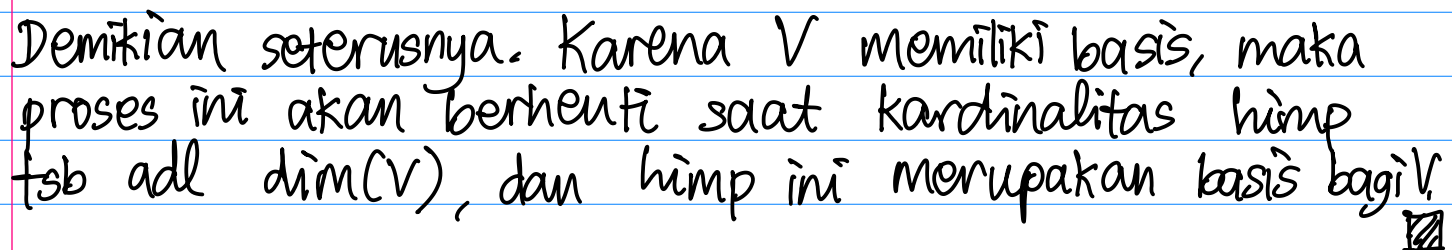 Demikian seterusnya. Karena V memiliki basis, maka
proses ini akan berhenti saat kardinalitas himp
tsb adl dim(V), dan himp ini merupakan basis bagi V.